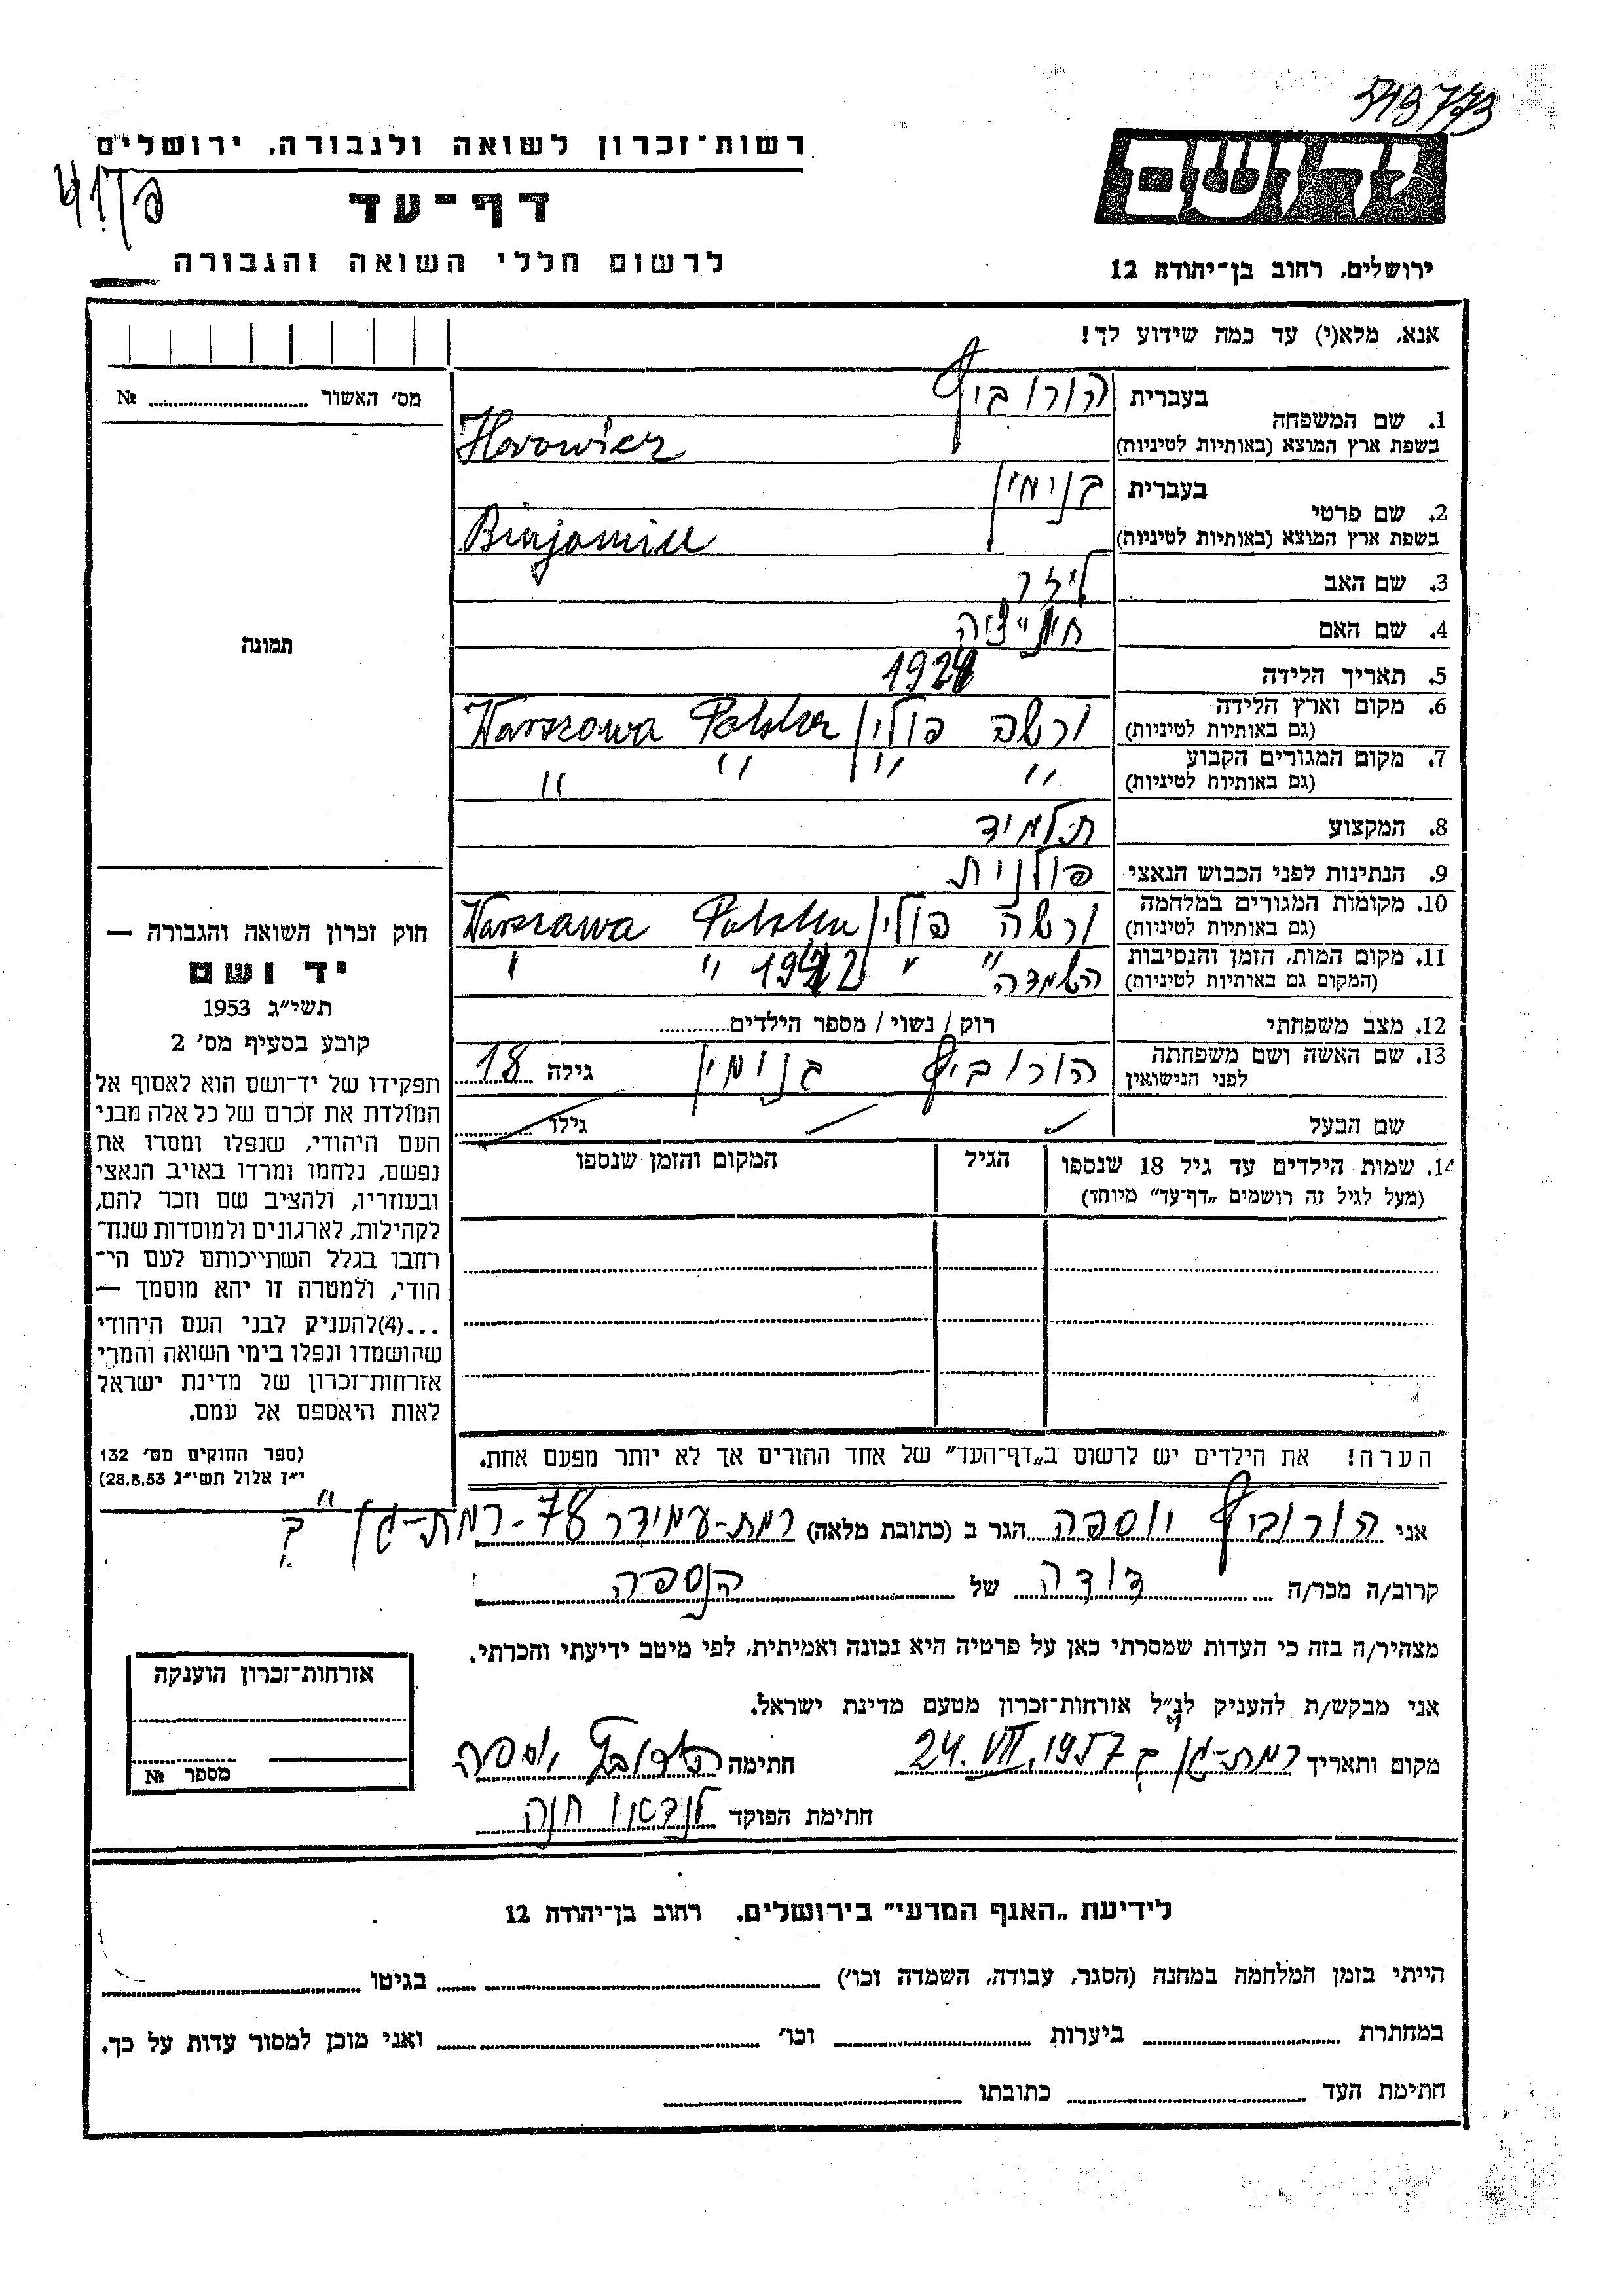 543773
יד ושם
רשות־זכרון לשואה ולגבורה, ירושלים
דף־עד
לרשום חללי השואה והגבורה
ירושלים, רחוב בן־יהודה 12
אנא, מלא(י) עד כמה שידוע לך!
מס' האשור ........ №
תמונה
1. שם המשפחה בעברית הורוביץ
בשפת ארץ המוצא (באותיות לטיניות) Horowicz
2. שם פרטי בעברית בנימין
בשפת ארץ המוצא (באותיות לטיניות) Binjamin
3. שם האב ליזר
4. שם האם
5. תאריך הלידה
6. מקום וארץ הלידה (גם באותיות לטיניות) ורשה פולין Warszawa Polska
7. מקום המגורים הקבוע (גם באותיות לטיניות) " " " "
8. המקצוע תלמיד
9. הנתינות לפני הכבוש הנאצי פולנית
10. מקומות המגורים במלחמה (גם באותיות לטיניות) ורשה פולין Warszawa Polska
11. מקום המות, הזמן והנסיבות (המקום גם באותיות לטיניות) " " 1942 " " השמדה
12. מצב משפחתי רוק / נשוי / מספר הילדים........
13. שם האשה ושם משפחתה לפני הנישואין הורוביץ בנימין גילה 18
שם הבעל גילו
14. שמות הילדים עד גיל 18 שנספו הגיל המקום והזמן שנספו
(מעל לגיל זה רושמים „דף־עד" מיוחד)
הערה! את הילדים יש לרשום ב„דף־העד" של אחד ההורים אך לא יותר מפעם אחת.
חוק זכרון השואה והגבורה —
יד ושם
תשי"ג 1953
קובע בסעיף מס' 2
תפקידו של יד־ושם הוא לאסוף אל
המולדת את זכרם של כל אלה מבני
העם היהודי, שנפלו ומסרו את
נפשם, נלחמו ומרדו באויב הנאצי
ובעוזריו, ולהציב שם וזכר להם,
לקהילות, לארגונים ולמוסדות שנח־
רבו בגלל השתייכותם לעם הי־
הודי, ולמטרה זו יהא מוסמך —
...(4)להעניק לבני העם היהודי
שהושמדו ונפלו בימי השואה והמרי
אזרחות־זכרון של מדינת ישראל
לאות היאספם אל עמם.
(ספר החוקים מס' 132
י"ז אלול תשי"ג 28.8.53)
אני הורוביץ יוספה הגר ב (כתובת מלאה) רמת-עמידר 78 - רמת-גן
קרוב/ה מכר/ה דודה של הנספה
מצהיר/ה בזה כי העדות שמסרתי כאן על פרטיה היא נכונה ואמיתית, לפי מיטב ידיעתי והכרתי.
אני מבקש/ת להעניק לנ"ל אזרחות־זכרון מטעם מדינת ישראל.
מקום ותאריך רמת-גן 24.VII.1957 חתימה הורוביץ יוספה
חתימת הפוקד לנדאו חנה
אזרחות־זכרון הוענקה
מספר №
לידיעת „האגף המדעי" בירושלים. רחוב בן־יהודה 12
הייתי בזמן המלחמה במחנה (הסגר, עבודה, השמדה וכו') ........ בגיטו ........
במחתרת ........ ביערות ........ וכו' ........ ואני מוכן למסור עדות על כך.
חתימת העד ........ כתובתו ........